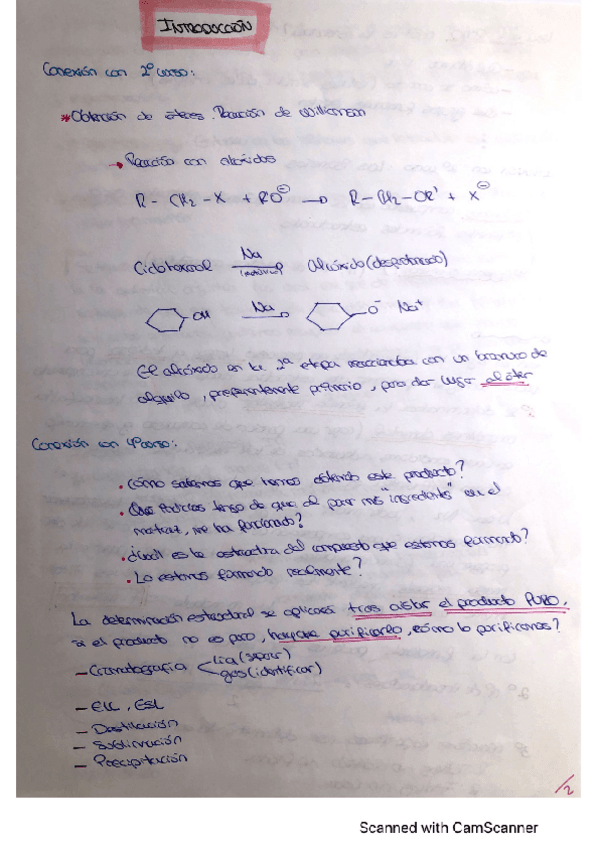 INTRODUCCIÓN
Conexión con 2º curso:
* Obtención de éteres. Reacción de Williamson
→ Reacción con alcóxidos
R - CH2 - X + RO⊖ → R - CH2 - OR' + X⊖
Ciclohexanol Na (metálico) Alcóxido (desprotonado)
OH Na → O⁻ Na⁺
El alcóxido en la 2ª etapa reaccionaba con un bromuro de
alquilo, preferentemente primario, para dar lugar al éter
Conexión con 4º curso:
• ¿Cómo sabemos que hemos obtenido este producto?
• Que noticias tengo de que, al poner mis "ingredientes" en el
matraz, me ha funcionado?
• ¿Cuál es la estructura del compuesto que estamos formando?
• Lo estamos formando realmente?
La determinación estructural se aplicará tras aislar el producto PURO,
si el producto no es puro, hay que purificarlo, ¿cómo lo purificamos?
- Cromatografía líq (separar)
gas (identificar)
- ELL, ESL
- Destilación
- Sublimación
- Precipitación
/2
Scanned with CamScanner